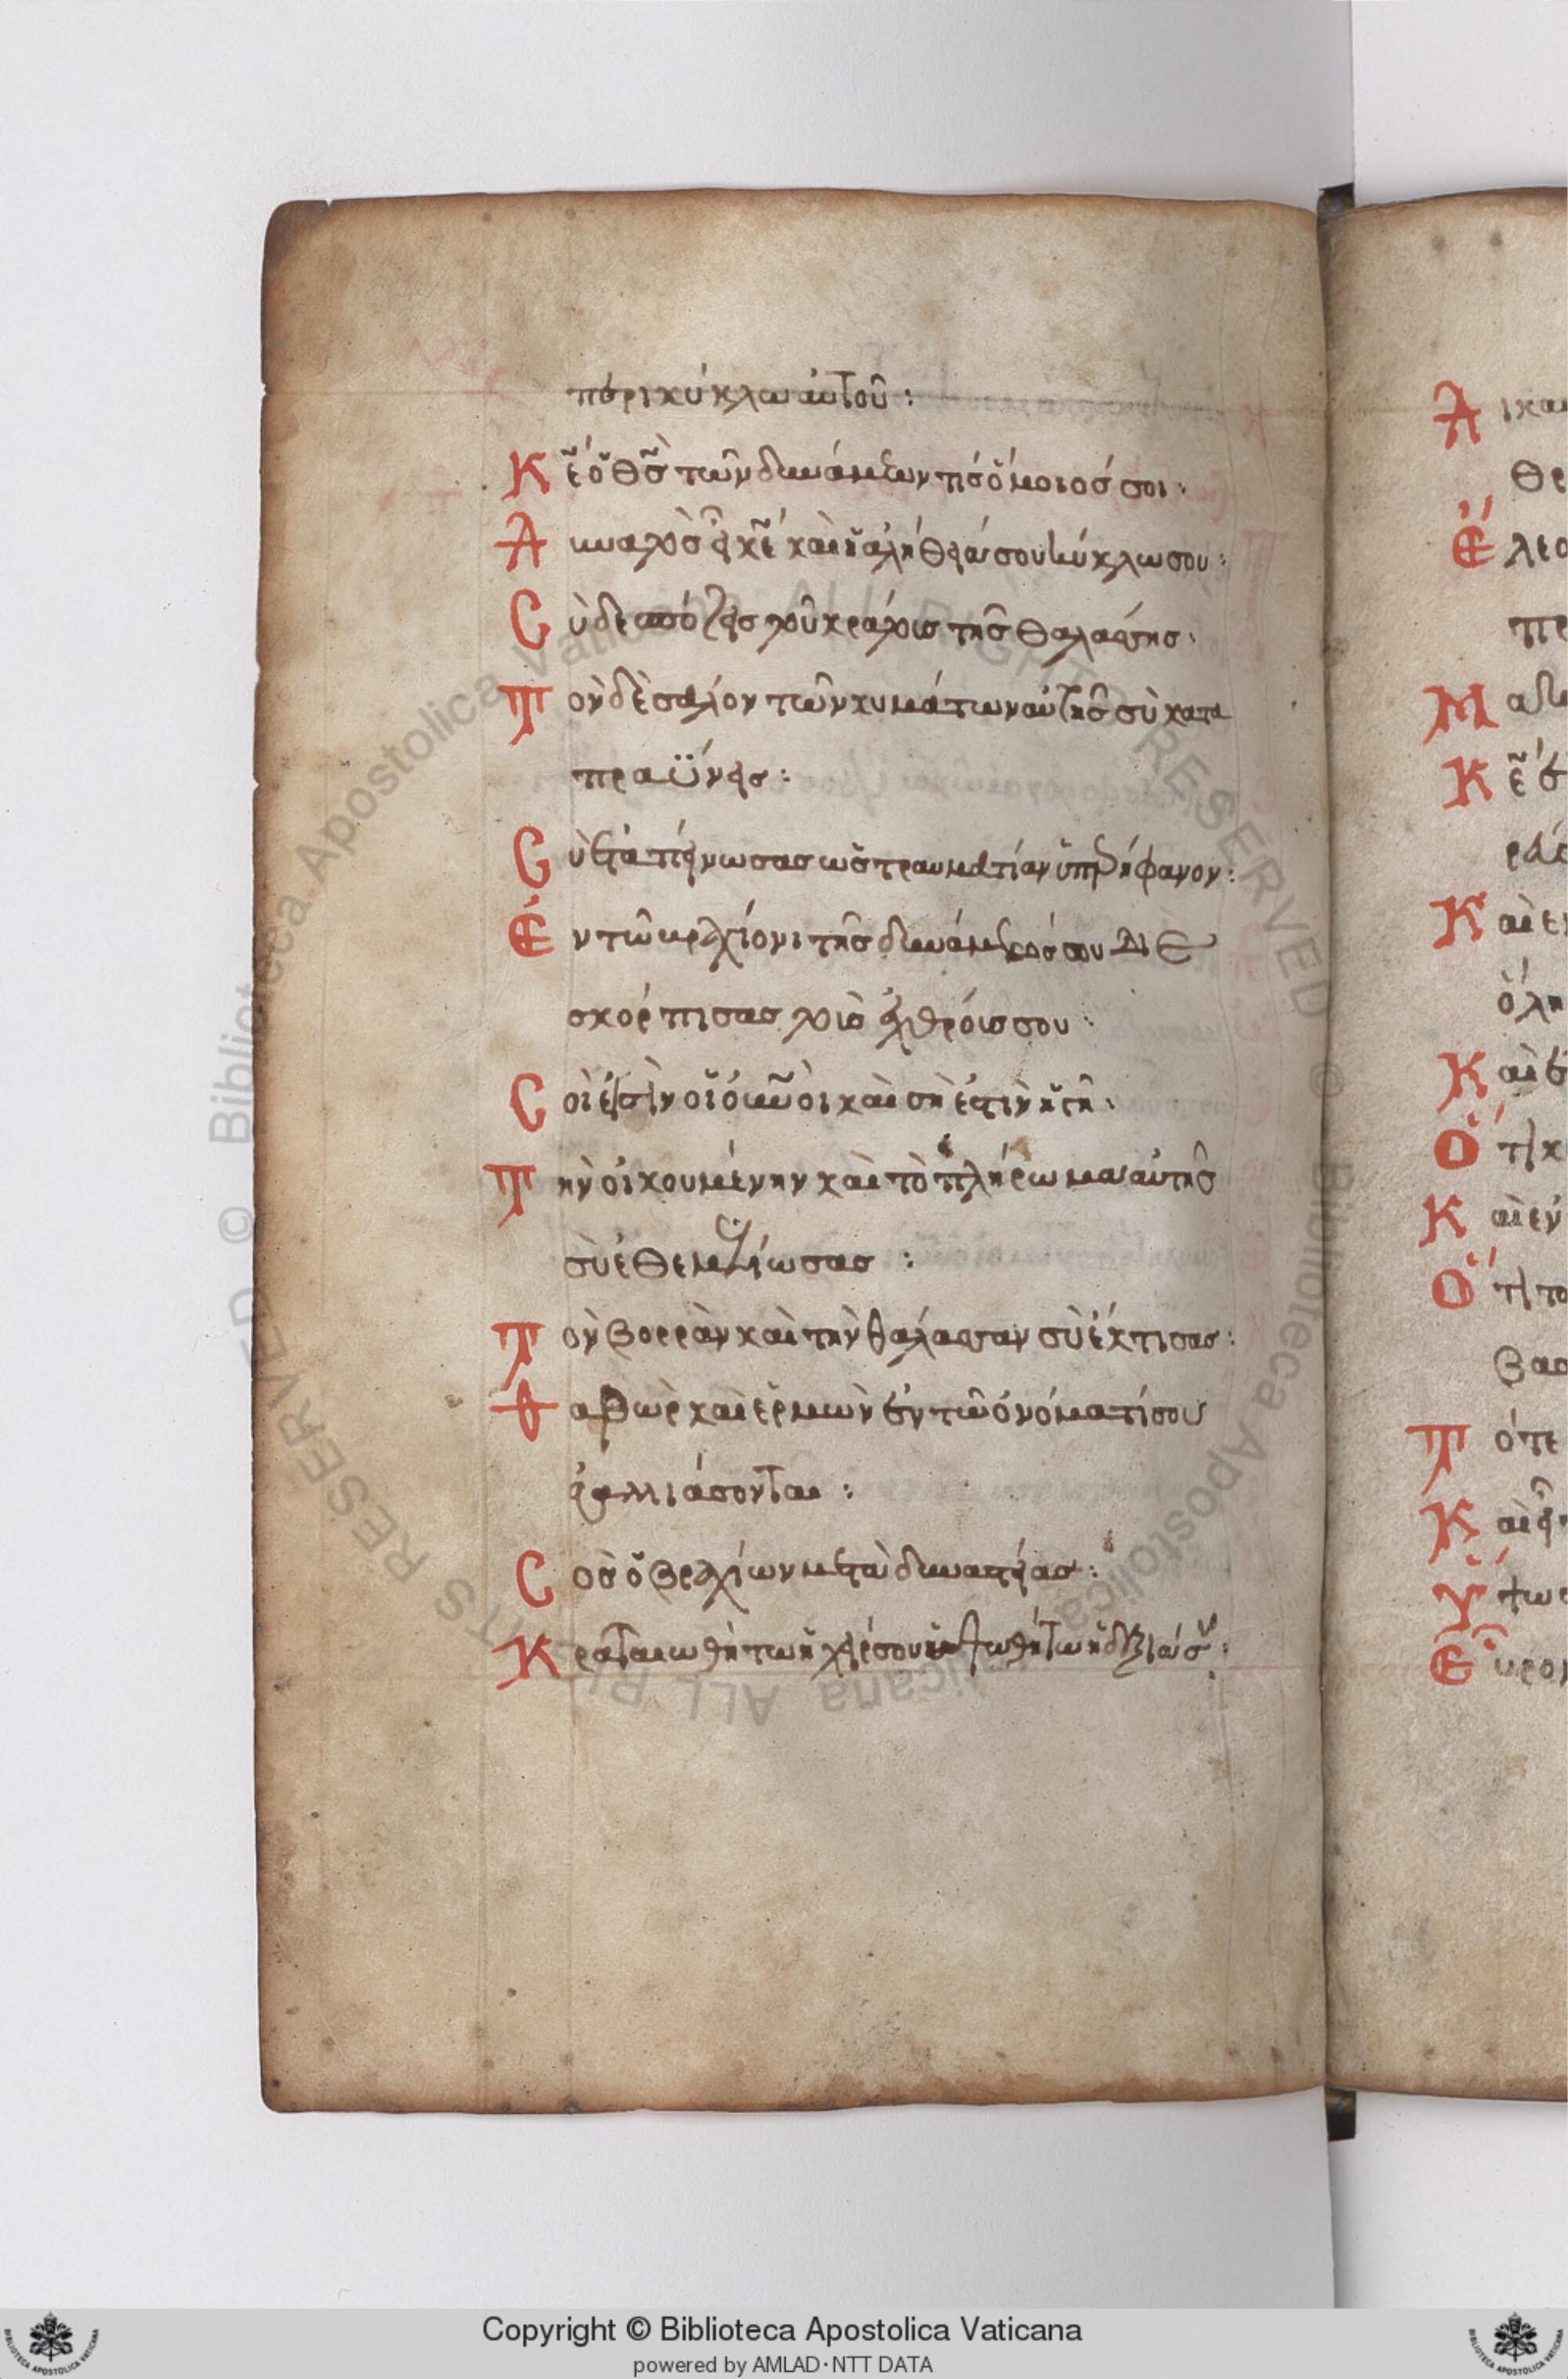 περικύκλω αὐτοῦ :
Κε̃ ὁ θς̃ τῶν δυνάμεων τίς ὅμοιός σοι ·
Δυνατὸς εἶ κε̃ καὶ ἡ ἀλήθειά σου κύκλω σου :
Σὺ δεσπόζεις τοῦ κράτους τῆς θαλάσσης ·
Τὸν δὲ σάλον τῶν κυμάτων αὐτῆς σὺ κατα
πραΰνεις :
Σὺ ἐταπείνωσας ὡς τραυματίαν ὑπερήφανον :
Ἐν τῶ βραχίονι τῆς δυνάμεώς σου διε
σκόρπισας τοὺς ἐχθρούς σου :
Σοί εἰσιν οἱ οὐνοὶ καὶ σή ἐστιν ἡ γῆ :
Τὴν οἰκουμένην καὶ τὸ πλήρωμα αὐτῆς
σὺ ἐθεμελίωσας :
Τὸν βορρὰν καὶ τὴν θάλασσαν σὺ ἔκτισας :
Θαβὼρ καὶ ἑρμὼν ἐν τῶ ὀνόματί σου
ἀγαλλιάσονται :
Σὸς ὁ βραχίων μετὰ δυναστείας :
Κραταιωθήτω ἡ χείρ σου ὑψωθήτω ἡ δεξιά σου :
Copyright © Biblioteca Apostolica Vaticana
powered by AMLAD·NTT DATA